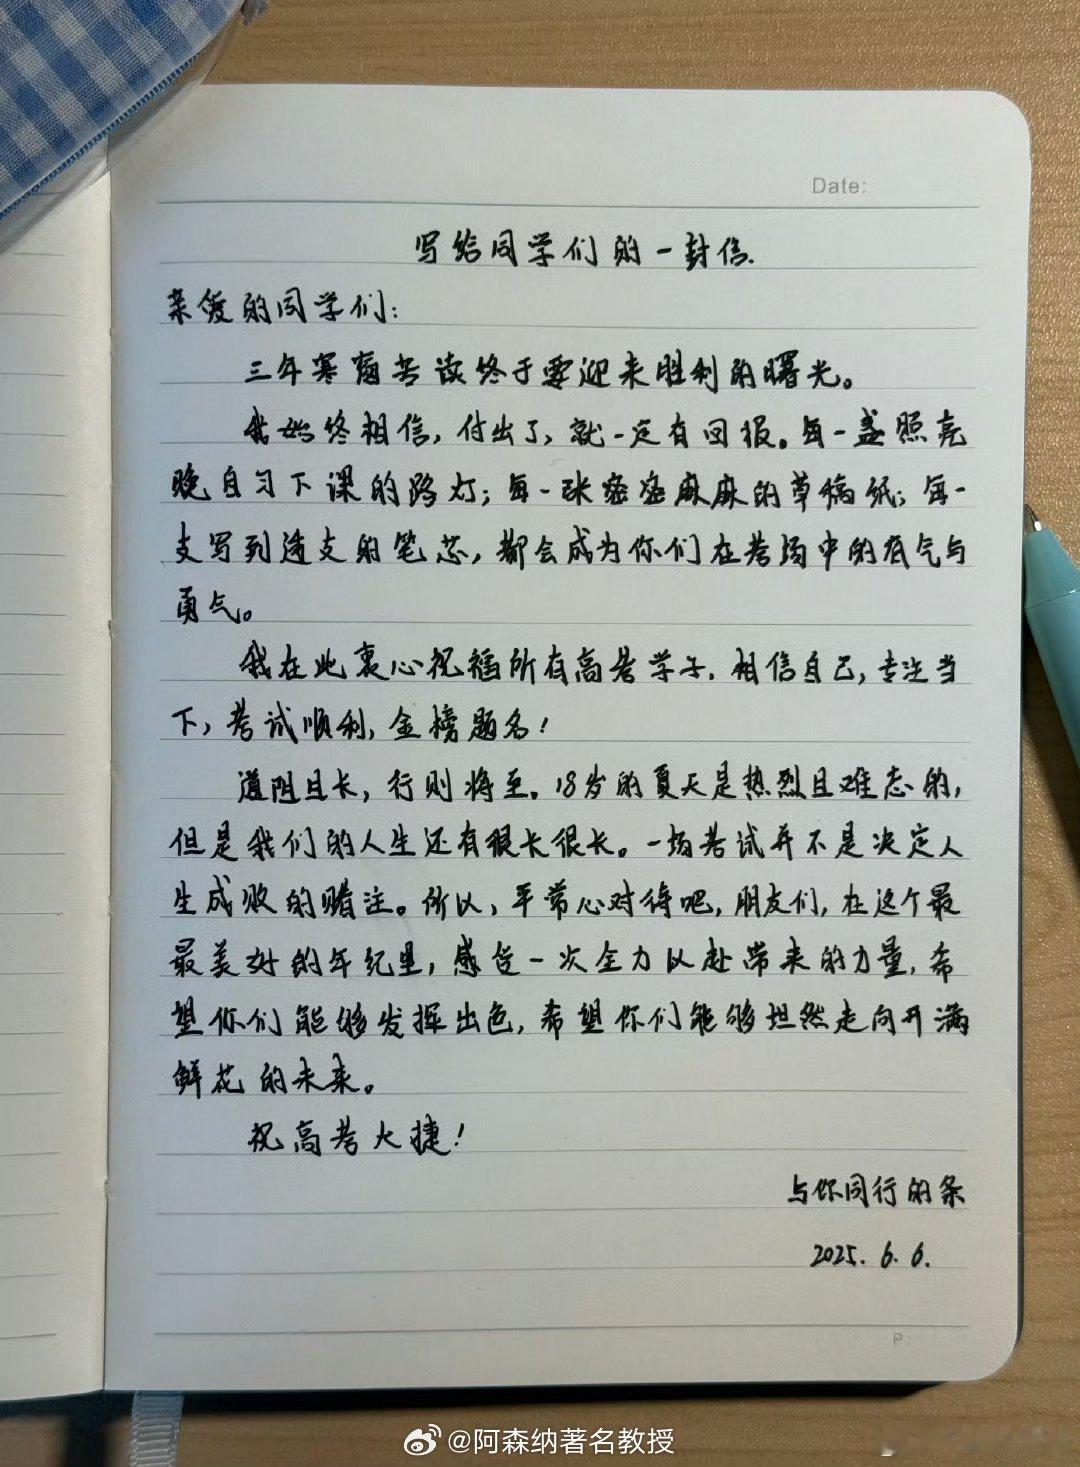 Date:
写给同学们的一封信.
亲爱的同学们：
三年寒窗苦读终于要迎来胜利的曙光。
我始终相信，付出了，就一定有回报。每一盏照亮
晚自习下课的路灯；每一张密密麻麻的草稿纸；每一
支写到透支的笔芯，都会成为你们在考场中的底气与
勇气。
我在此衷心祝福所有高考学子，相信自己，专注当
下，考试顺利，金榜题名！
道阻且长，行则将至。18岁的夏天是热烈且难忘的，
但是我们的人生还有很长很长。一场考试并不是决定人
生成败的赌注。所以，平常心对待吧，朋友们，在这个最
最美好的年纪里，感受一次全力以赴带来的力量，希
望你们能够发挥出色，希望你们能够坦然走向开满
鲜花的未来。
祝高考大捷！
与你同行的条
2025.6.6.
P:
@阿森纳著名教授